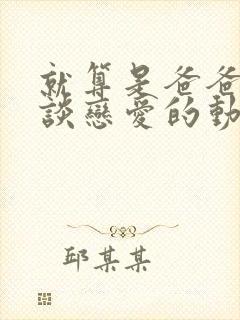 就算是爸爸
談戀愛的動
邱某某